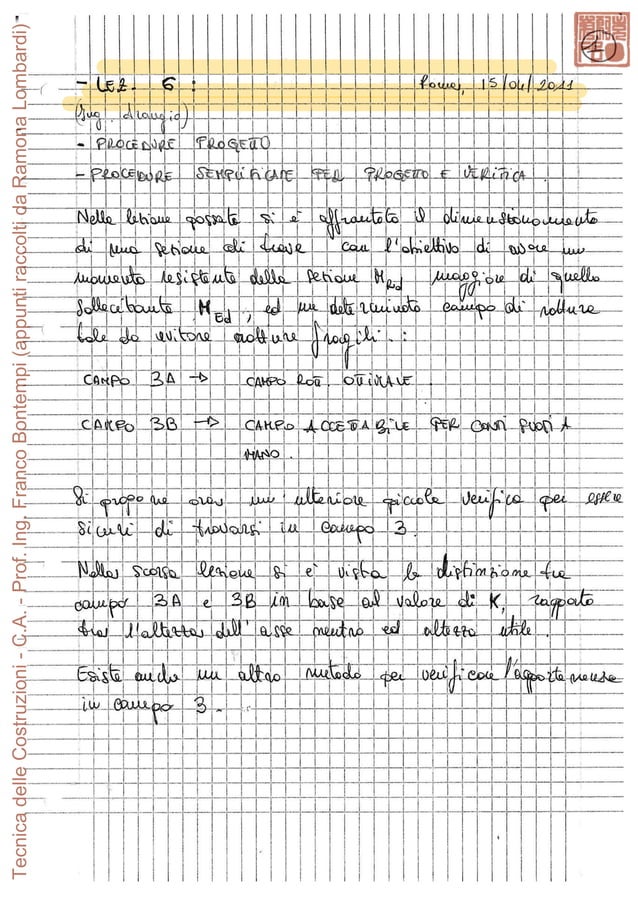 - LEZ. 6 : Roma, 15/04/2011
(Ing. Arangio)
- PROCEDURE PROGETTO
- PROCEDURE SEMPLIFICATE PER PROGETTO E VERIFICA.
Nella lezione passata si è affrontato il dimensionamento
di una sezione di trave con l'obiettivo di avere un
momento resistente della sezione MRd maggiore di quello
sollecitante MEd, ed un determinato campo di rottura
tale da evitare rotture fragili.:
CAMPO 3A → CAMPO ROTT. OTTIMALE.
CAMPO 3B → CAMPO ACCETTABILE PER CONTI FUORI A
MANO.
Si propone ora un' ulteriore piccola verifica per essere
sicuri di trovarsi in campo 3.
Nella scorsa lezione si è vista la distinzione tra
campo 3A e 3B in base al valore di K, rapporto
tra l'altezza dell'asse neutro ed altezza utile.
Esiste anche un altro metodo per verificare l'appartenenza
in campo 3.
Tecnica delle Costruzioni - C.A. - Prof. Ing, Franco Bontempi (appunti raccolti da Ramona Lombardi)-